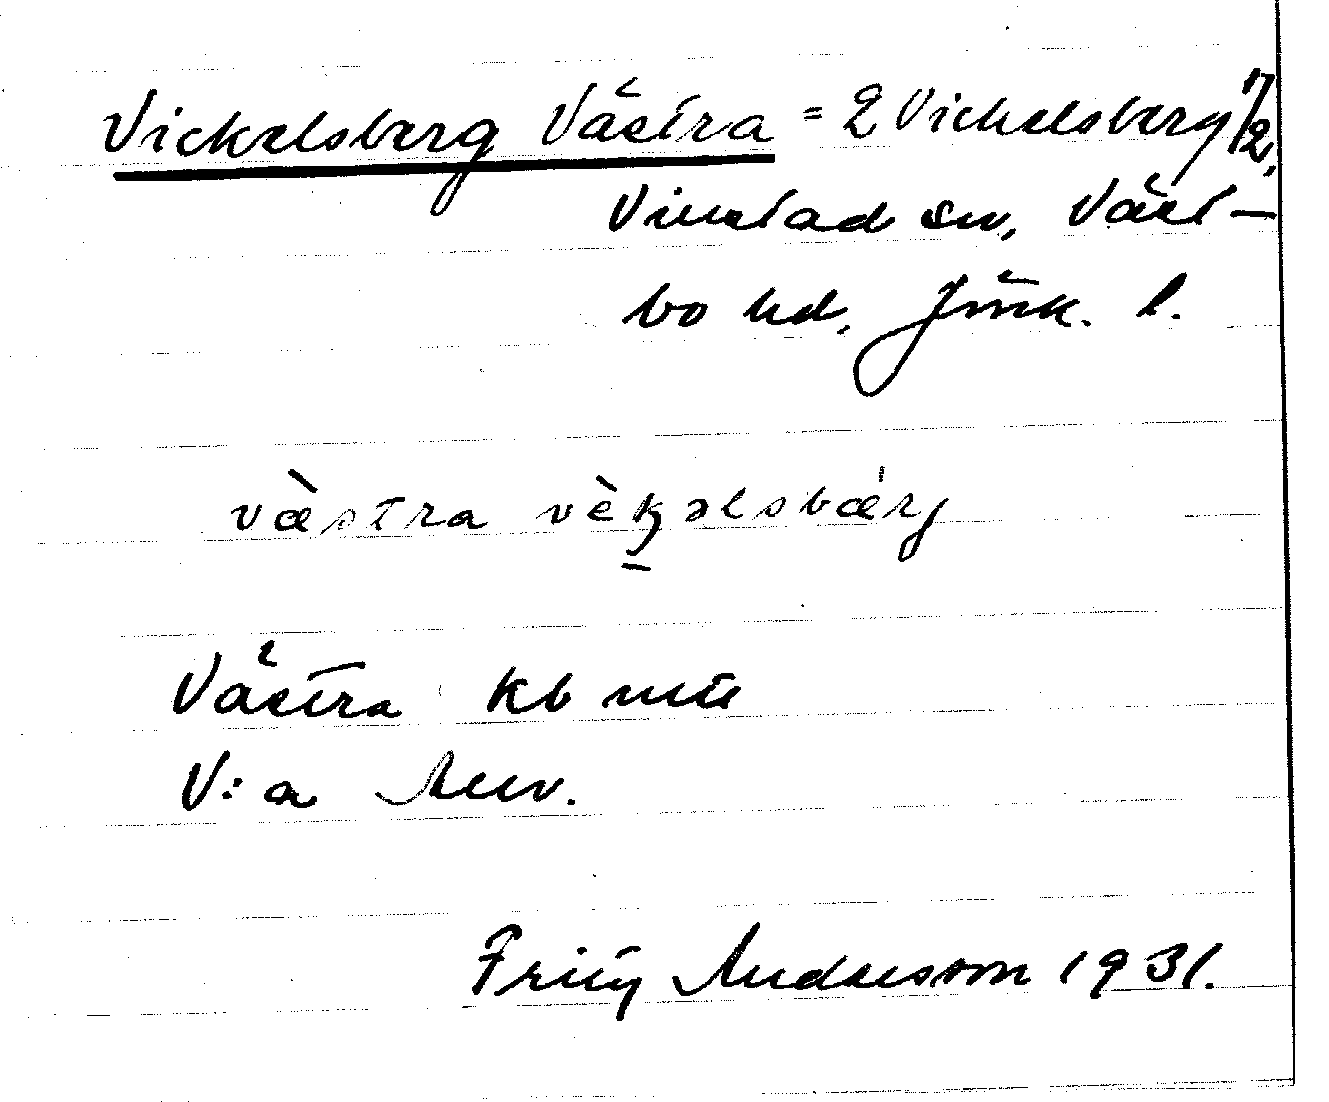 Vickelsberg Västra = 2 Vickelsberg 1/2,
Vinstad sn, Väst-
bo hd, Jönk. l.
vàstra vèkəlsbærj
Västra kb mtl
V:a Anv.
Fritz Andersson 1931.